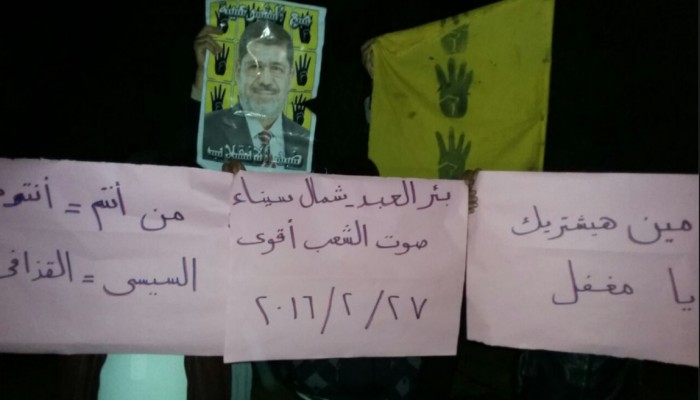 مين هيشتريك
يا مغفل
بئر العبد_شمال سيناء
صوت الشعب أقوى
٢٠١٦/٢/٢٧
من أنتم =
السيسى = القذافى